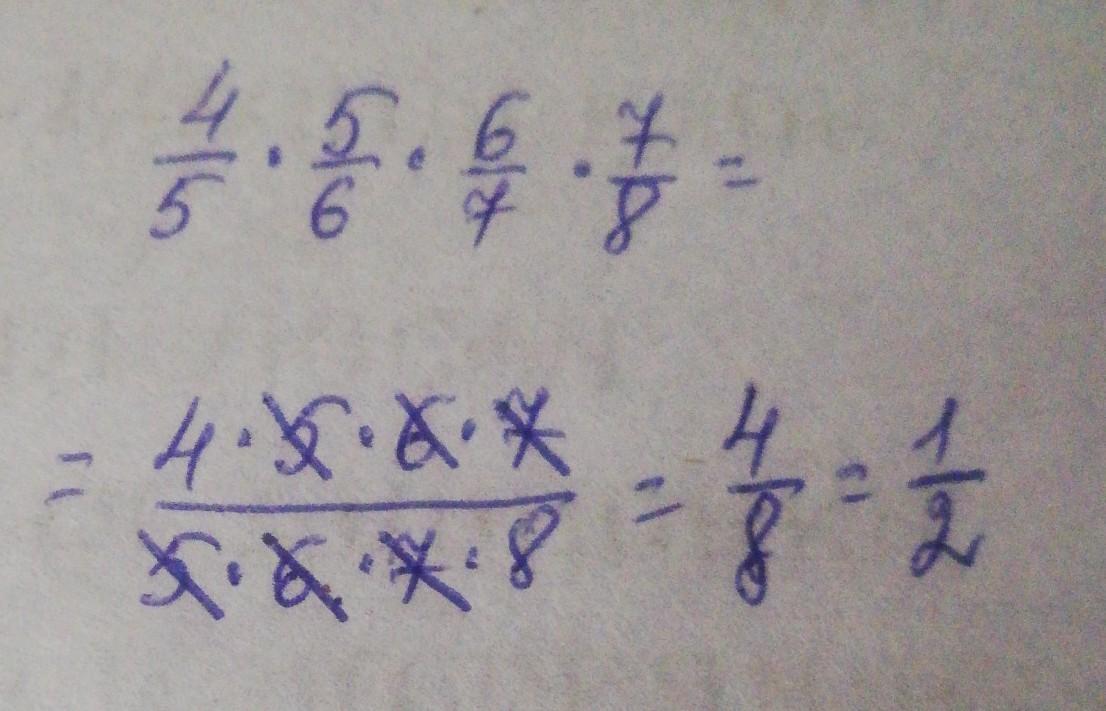 4/5 · 5/6 · 6/7 · 7/8 =
= 4 · 5 · 6 · 7 / 5 · 6 · 7 · 8 = 4/8 = 1/2